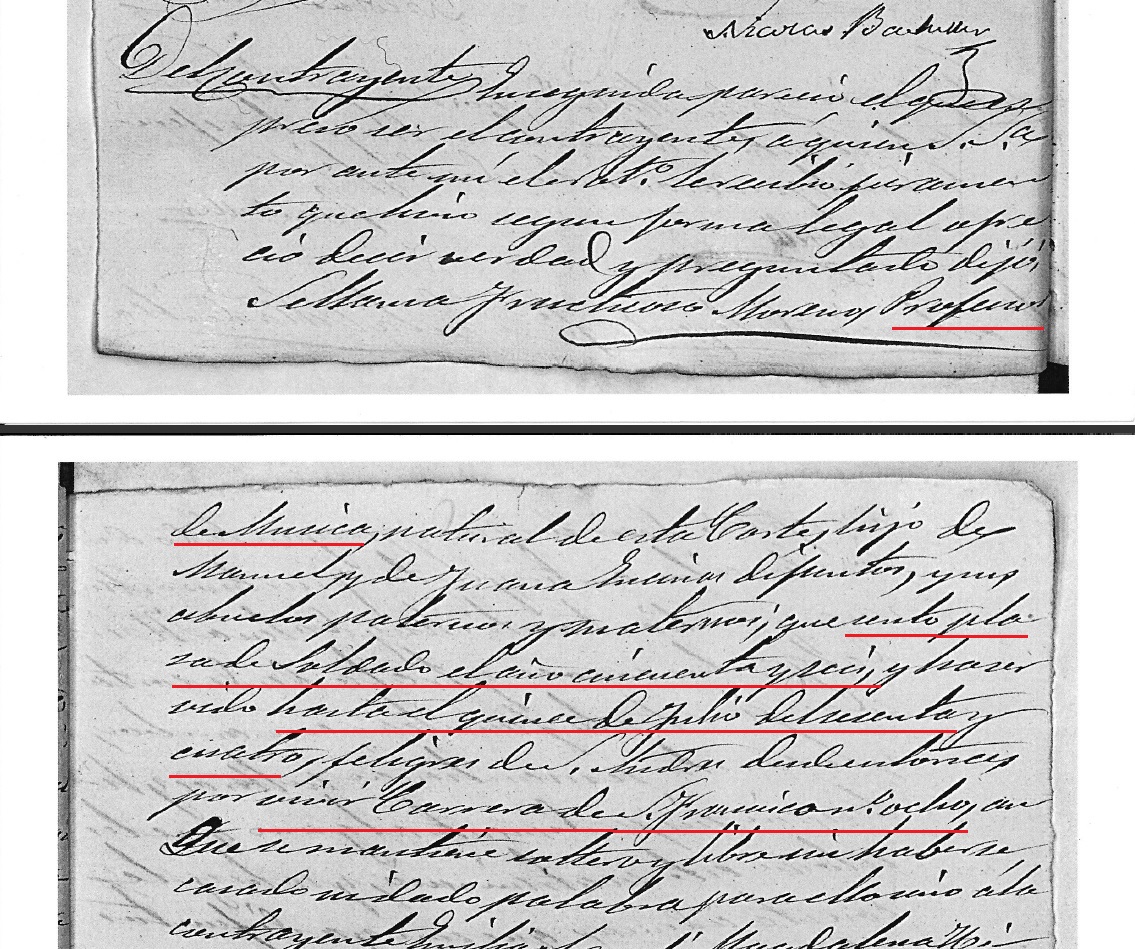 Nicolas Bachiller
Del Contrayente Enseguida parecio el que es
preso ser el contrayente, a quien S. Sa.
por ante mi el Notº. le recibio juramen
to que hizo segun forma legal ofre
cio decir verdad y preguntado dijo:
Se llama Fructuoso Moreno, Profesor
de Musica, natural de esta Corte, hijo de
Manuel y de Juana difuntos, y sus
abuelos paternos y maternos; que sento pla
za de Soldado el año cincuenta y seis, y ha ser
vido hasta el quince de Julio del sesenta y
cuatro, feligres de S. Andres desde entonces
por vivir Carrera de S. Francisco nº. ocho,
Que se mantiene soltero y libre sin haberse
casado ni dado palabra para ello sino á la
contrayente Emilia Magdalena